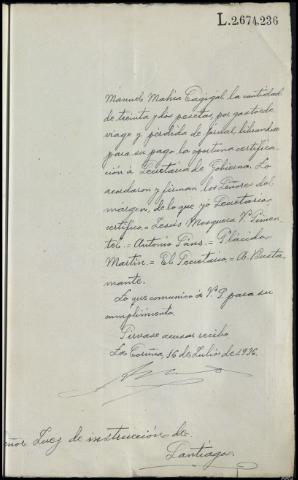 L.2.674.236
Manuel Mahia Fagigal la cantidad
de treinta y dos pesetas, por gastos de
viage y pérdida de jornal, librandose
para su pago la oportuna certifica
ción a Secretaria de Gobierno. Lo
acordaron y firman los Señores del
margen, de lo que yo Secretario
certifico = Jesús Mosquera V. Pimen
tel. = Antonio Pans. = Placido
Martin. = El Secretario = A. Busta
mante.
Lo que comunico á V. S. para su
cumplimiento.
Sirvase acusar recibo
La Coruña, 16 de Julio de 1936.
Señor Juez de instrucción de
Santiago.